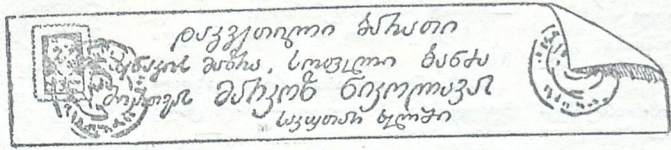 დაკვეთილი ბარათი
სენაკის მაზრა, სოფელი ბანძა
მიერთვას მარკოზ ნიკოლავას
საკუთარ ხელში